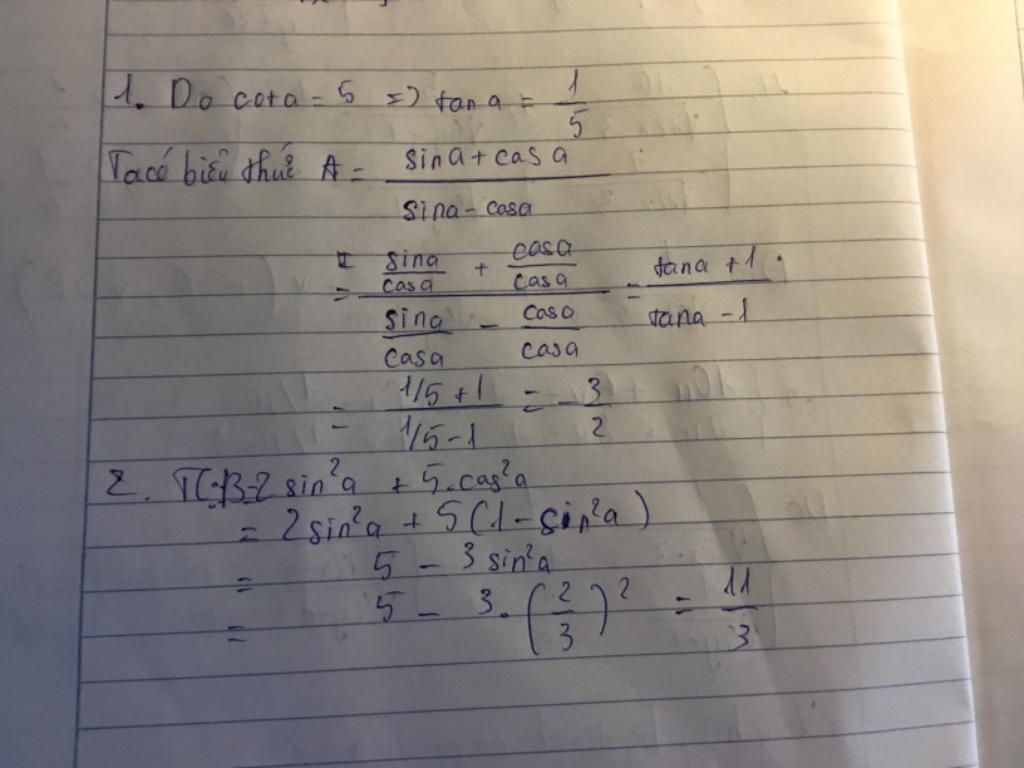 1. Do cota = 5 => tan a = 1/5
Ta có biểu thức A = (sina + cosa) / (sina - cosa)
= (sina/cosa + cosa/cosa) / (sina/cosa - cosa/cosa) = (tana + 1) / (tana - 1)
= (1/5 + 1) / (1/5 - 1) = -3/2
2. B = 2 sin²a + 5.cos²a
= 2sin²a + 5(1 - sin²a)
= 5 - 3sin²a
= 5 - 3.(2/3)² = 11/3